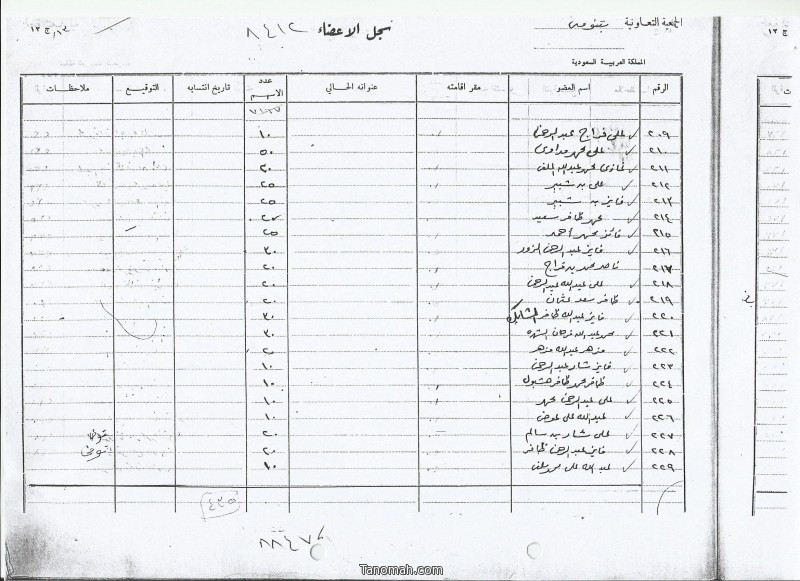 الجمعية التعاونية بتنومة
سجل الاعضاء ٨٤١٢
ج ١٣
المملكة العربية السعودية
الرقم اسم العضو مقر اقامته عنوانه الحالي عدد الاسهم تاريخ انتسابه التوقيع ملاحظات
٢٠٩ علي فراج عبدالرحمن ١٠
٢١٠ علي محمد ٥٠
٢١١ غازي محمد عبدالله ٢٠
٢١٢ علي بن شبير ٢٥
٢١٣ فايز بن شبير ٢٥
٢١٤ محمد ظافر سعيد ٢٥
٢١٥ فائز محمد أحمد ٢٥
٢١٦ فايز عبدالرحمن ٣٠
٢١٧ ناصر محمد بن فراج ٢٠
٢١٨ علي عبدالله عبدالرحمن ٢٠
٢١٩ ظافر سعد عثمان ٢٠
٢٢٠ فايز عبدالله ظافر ٣٠
٢٢١ محمد عبدالله فرحان ٣٠
٢٢٢ مزهر عبدالله مزهر ٢٠
٢٢٣ فايز شار عبدالرحمن ١٠
٢٢٤ ظافر محمد ظافر هشبول ١٠
٢٢٥ علي عبدالرحمن محمد ١٠
٢٢٦ عبدالله علي عوض ١٠
٢٢٧ علي شار بن سالم ٢٠ توفى
٢٢٨ فايز عبدالرحمن ظافر ٢٠ توفى
٢٢٩ عبدالله علي محمد ١٠
٤٣٥
٨٨٤٧
Tanomah.com